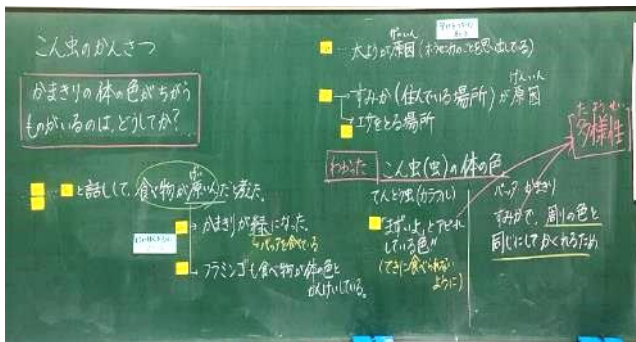 こん虫のかんさつ
かまきりの体の色がちがう
ものがいるのは、どうしてか?
と話して、食べ物が原いんだと考えた。
げ
かまきりが緑になった。
バッタを食べている
フラミンゴも食べ物が体の色と
かんけいしている。
太ようが原因
げんいん
すみか(住んでいる場所)が原因
げんいん
エサをとる場所
わかった
こん虫(虫)の体の色
てんとう虫(カラフル)
「まずいよ」とアピールしている色
(てきに食べられない
ように)
バッタ かまきり
すみかで、周りの色と
同じにしてかくれるため
たようせい
多様性